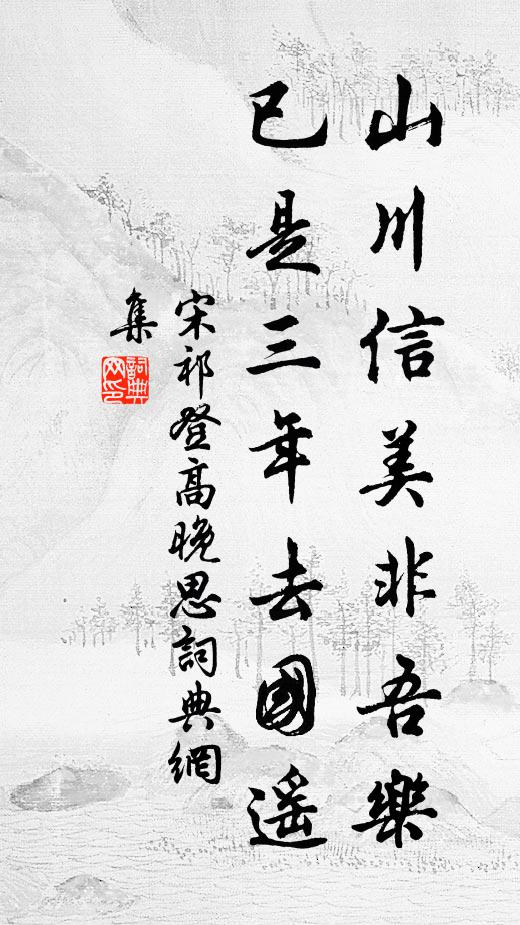 山川信美非吾樂
已是三年去國遥
宋祁登高晚思詞典網
集
詞典
网印